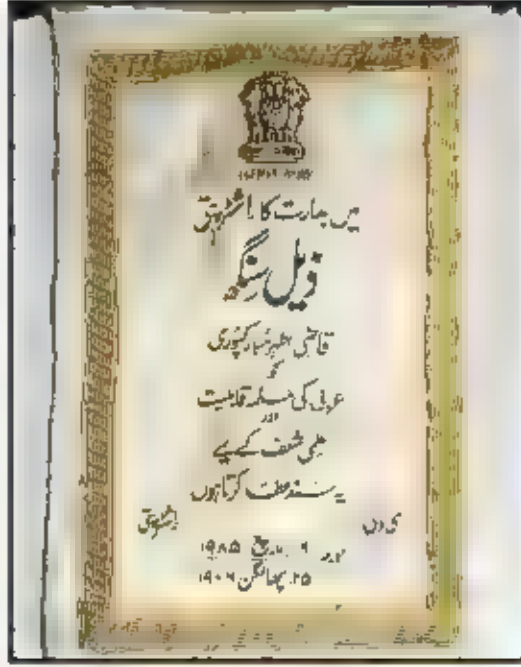 میں بھارت کا راشٹرپتی
ذیل سنگھ
قاضی اطہر مبارکپوری
کو
عربی کی مسلمہ قابلیت
اور
علمی شغف کے لیے
یہ سند عطا کرتا ہوں
نئی دہلی راشٹرپتی
مارچ ۱۹۸۵
۲۵ پھالگن ۱۹۰۶